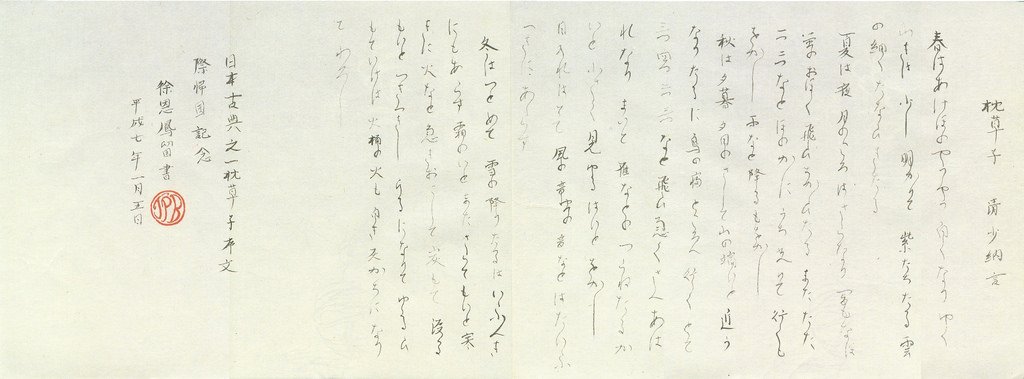 枕草子　清少納言
春はあけほの やうやう白くなりゆく
山きは 少し明かりて 紫たちたる雲
の細くたなひきたる
夏は夜 月のころはさらなり 闇もなほ
蛍のおほく飛ひちかひたる またたた
一二なと ほのかにうち光て行くも
をかし 雨なと降るもをかし
秋は夕暮 夕日のさして山の端いと近う
なりたるに 烏の寝ところへ行くとて
三四二三なと飛ひ急くさへあは
れなり まいて 雁なとのつらねたるか
いと小さく見ゆるはいとをかし
日入りはてて 風の音虫の音なとはたいふ
へきにあらす
冬はつとめて 雪の降りたるはいふへき
にもあらす 霜のいと またさらてもいと寒
きに火なと急きおこして 炭もて渡る
もいとつきつきし になりて
もていけは 火桶の火も白き灰かちになり
てわろし
日本古典之一枕草子本文
際帰国記念
徐恩鳳留書
平成七年一月五日